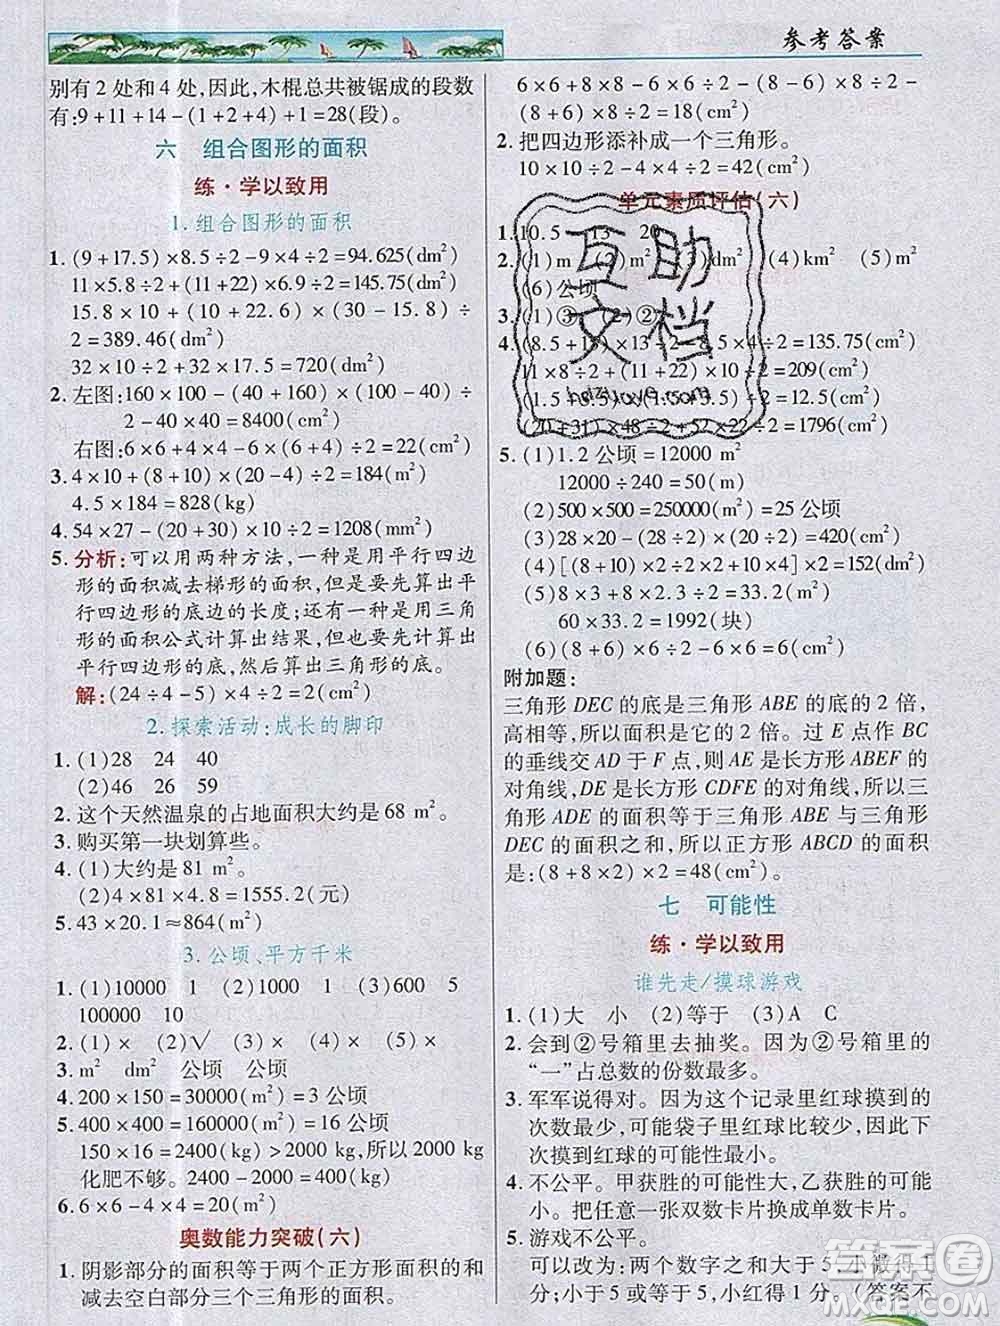 参考答案
别有 2 处和 4 处,因此,木棍总共被锯成的段数
有:9+11+14-(1+2+4)+1=28(段)。
六 组合图形的面积
练·学以致用
1.组合图形的面积
1. (9+17.5)×8.5÷2-9×4÷2=94.625(dm²)
11×5.8÷2+(11+24)×6.9÷2=145.75(dm²)
15.8×10+(10+2.6)×(30-15.8)÷
2=389.46(dm²)
32×10÷2+32×35÷2=720(dm²)
2. 左图:160×100-(160+40)×(100-40)÷
2-100×40÷2=8400(cm²)
右图:6×6+4×4-6×(6+4)÷2=22(cm²)
3. 4×10+(8+10)×(20-4)÷2=184(m²)
4.5×184=828(kg)
4. 54×27-(20+30)×10÷2=1208(mm²)
5. 分析:可以用两种方法,一种是用平行四边
形的面积减去梯形的面积,但是要先算出平
行四边形的底边的长度;还有一种是用三角
形的面积公式计算出结果,同样需要先算出
平行四边形的底,然后算出三角形的底。
解:(24÷4-5)×4÷2=2(cm²)
2. 探索活动:成长的脚印
1. (1)28 24 40
(2)24 46 59
2. 这个天然温泉的占地面积大约是 68 m²。
3. 购买第一块划算些。
4. (1)大约是 81 m²。
(2)4×81×4.8=1555.2(元)
5. 43×20.1≈864(m²)
3. 公顷、平方千米
1. (1)10000 1 (2)1000 (3)600 5
100000 10
2. (1)× (2)√ (3)× (4)×
3. m² dm² 公顷 公顷
4. 200×150=30000(m²)=3 公顷
5. 400×400=160000(m²)=16 公顷
150×16=2400(kg),所以 2000 kg
化肥不够。2400-2000=400(kg)
6. 6×6-4×4=20(m²)
奥数能力突破(六)
1. 阴影部分的面积等于两个正方形面积的和
减去空白部分三个三角形的面积。
6×6+8×8-6×6÷2-(8-6)×8÷2-
(8+6)×8÷2=18(cm²)
2. 把四边形添补成一个三角形。
10×10÷2-4×4÷2=42(cm²)
单元素质评估(六)
1. 10.5 13 20
2. (1)m² (2)m² dm² (4)km² (5)m²
(6)公顷
3. (1)③ (2)②
4. (8.5+10)×13÷2-8.5×4÷2=
11×8÷2+(11+22)×10÷2=209(cm²)
(20+31)×48÷2+52×22÷2=1796(cm²)
5. (1)1.2 公顷=12000 m²
12000÷240=50(m)
(2)500×500=250000(m²)=25 公顷
(3)30×28-(28÷2)×(30×2)÷2=420(m²)
(4)[(8+10)×2÷2+10×4]×2=152(dm²)
(5)8×3+(8-3.4)×4÷2=33.2(m²)
60×33.2=1992(块)
(6)(8-2)×6÷2-6×2÷2=12(cm²)
附加题:
三角形 DEC 的底是三角形 ABE 的底的 2 倍,
高相等,所以面积是它的 2 倍。过 E 点作 BC
的垂线交 AD 于 F 点,则 AE 是长方形 ABEF 的
对角线,DE 是长方形 CDFE 的对角线,所以三
角形 ADE 的面积等于三角形 ABE 与三角形
DEC 的面积之和,所以正方形 ABCD 的面积
是:(8+8×2)×2=48(cm²)
七 可能性
练·学以致用
谁先走/摸球游戏
1. (1)大 小 (2)等于 (3)A C
2. 会到②号箱里去抽奖。因为②号箱里的
“一”占总数的份数最多。
3. 军军说得对。因为这个记录里红球摸到的
次数最少,可能袋子里红球比较少,因此再
次摸到红球的可能性最小。
4. 不公平。甲获胜的可能性大,乙获胜的可能
小。把任意一张双数卡片换成单数卡片。
5. 游戏不公平。
可以改为:两个数字之和大于 5,小微得 1
分;小于 5 或等于 5,小红得 1 分。(答案不
互助
文档
答案圈
MXQE.COM